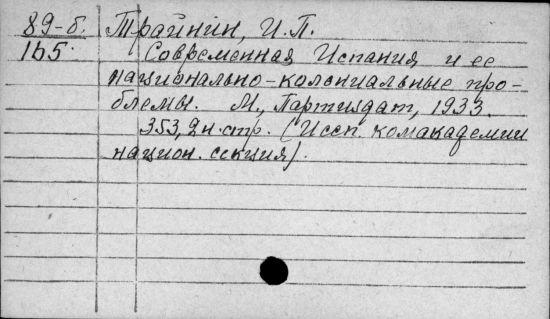 89-б. Трайнин, И.П.
165. Современная Испания и ее
национально-колониальные про-
блемы. М, Партиздат, 1933.
353,2н.стр. (Иссл. комакадемии
национ. секция).